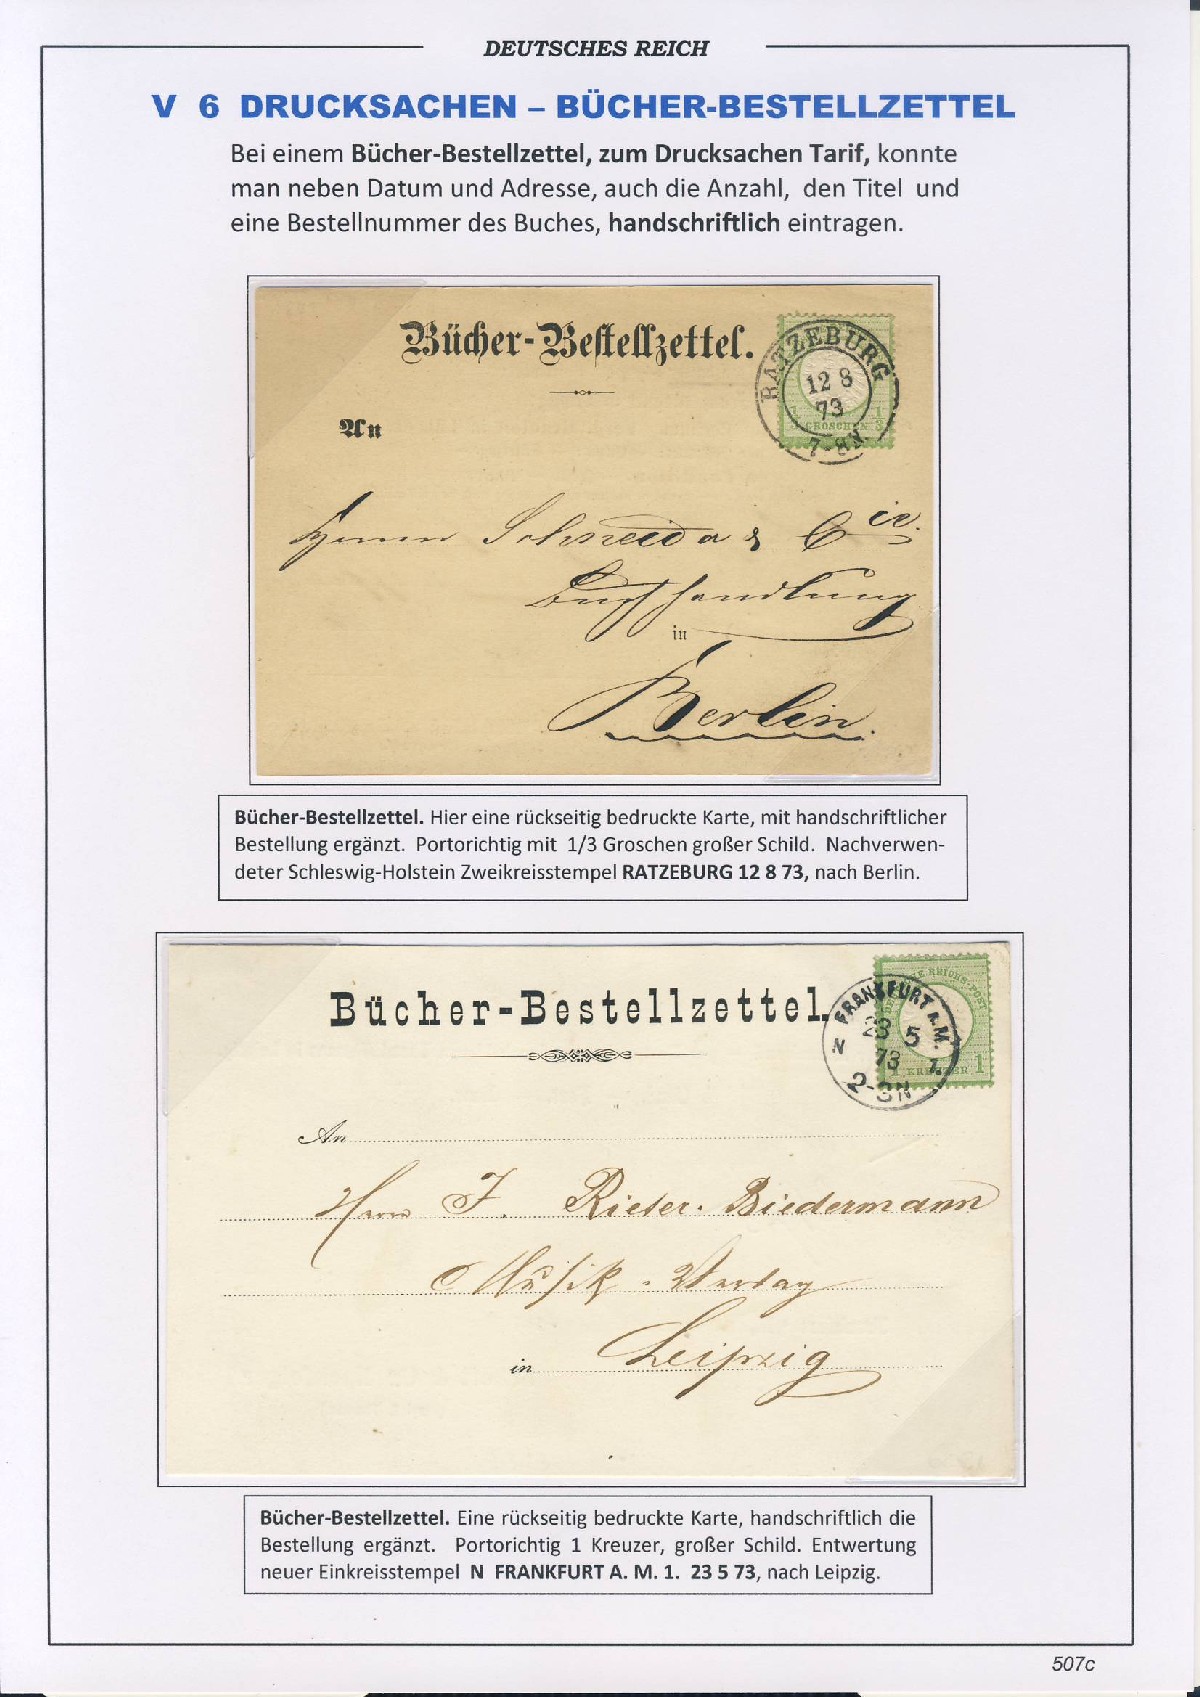 DEUTSCHES REICH
V 6 DRUCKSACHEN – BÜCHER-BESTELLZETTEL
Bei einem Bücher-Bestellzettel, zum Drucksachen Tarif, konnte
man neben Datum und Adresse, auch die Anzahl, den Titel und
eine Bestellnummer des Buches, handschriftlich eintragen.
Bücher-Bestellzettel.
RATZEBURG
12 8
73
7-8N
1/3 GROSCHEN 1/3
An
Herrn Schneider & Cie.
Buchhandlung
in
Berlin.
Bücher-Bestellzettel. Hier eine rückseitig bedruckte Karte, mit handschriftlicher
Bestellung ergänzt. Portorichtig mit 1/3 Groschen großer Schild. Nachverwen-
deter Schleswig-Holstein Zweikreisstempel RATZEBURG 12 8 73, nach Berlin.
Bücher-Bestellzettel.
REICHS-POST
N FRANKFURT A.M. 1.
23 5
73
2-3N
1 KREUZER 1
An
Herrn J. Rieter-Biedermann
Musik-Verlag
in Leipzig
Bücher-Bestellzettel. Eine rückseitig bedruckte Karte, handschriftlich die
Bestellung ergänzt. Portorichtig 1 Kreuzer, großer Schild. Entwertung
neuer Einkreisstempel N FRANKFURT A. M. 1. 23 5 73, nach Leipzig.
507c